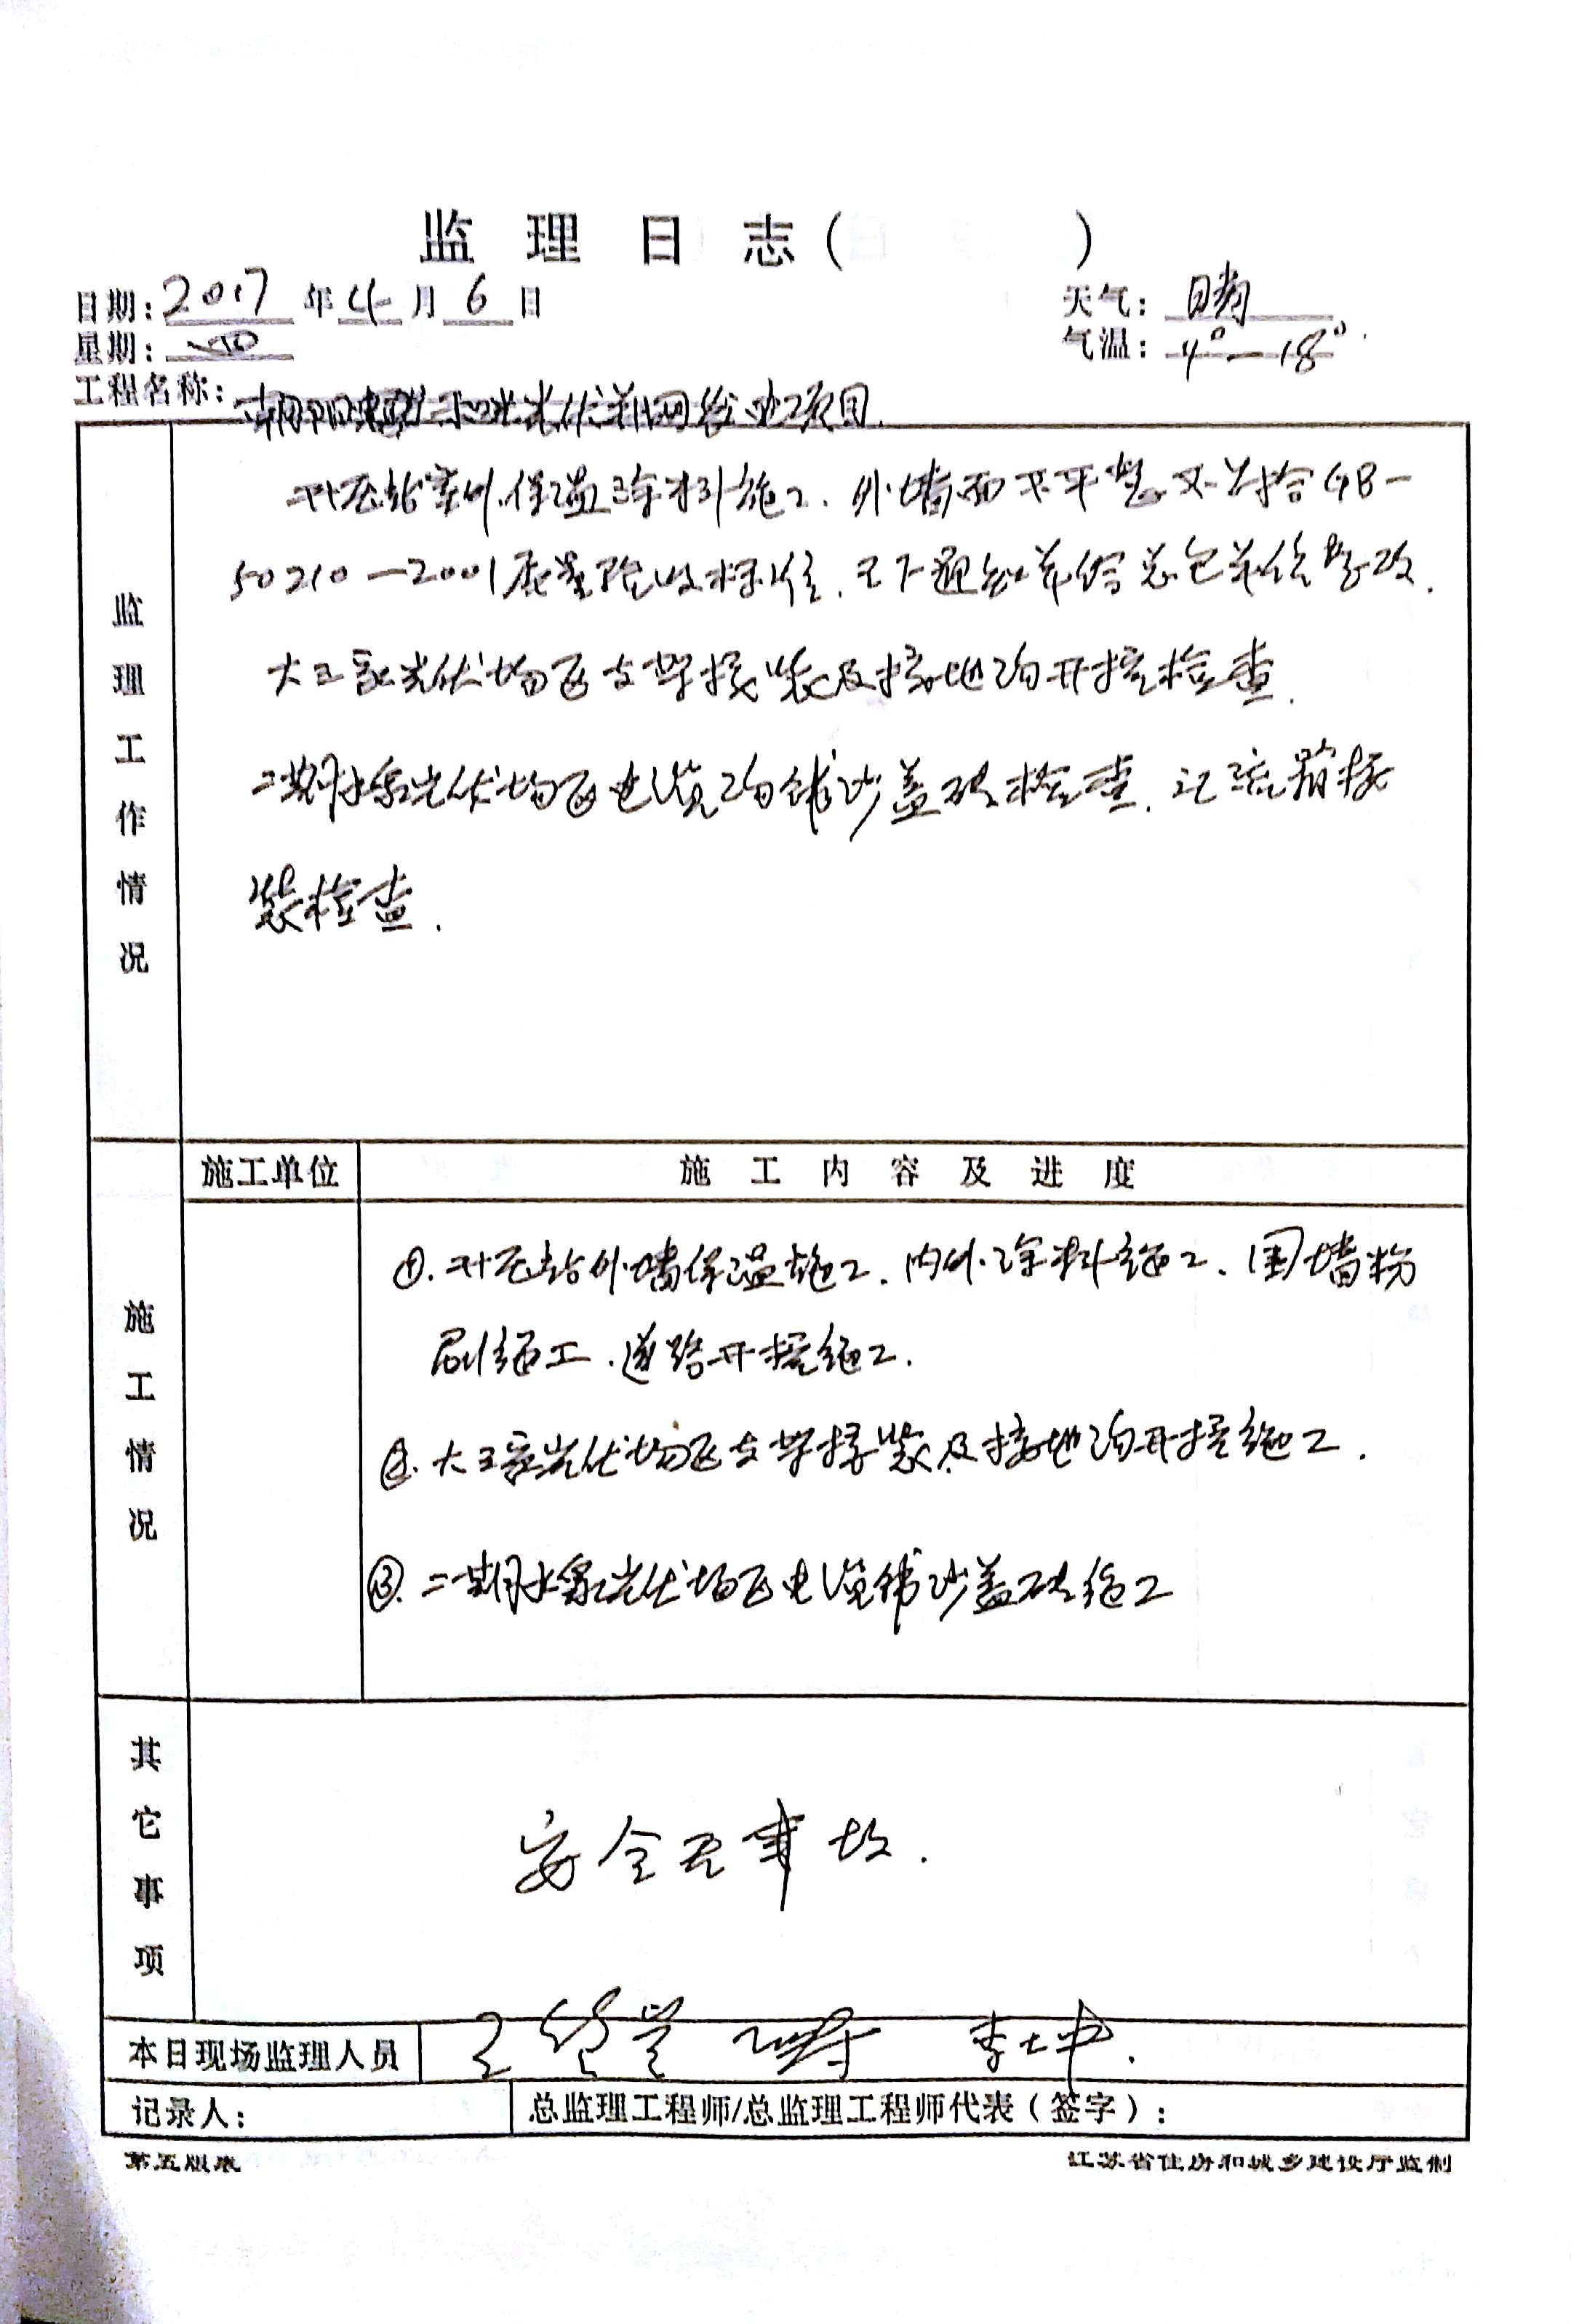 监理日志（ ）
日期：2017年4月6日 天气：晴
星期：四 气温：4°—18°.
工程名称：朝阳 光伏并网发电项目.
监理工作情况
升压站室外保温涂料施工. 外墙面不平整 又 符合GB-
50210-2001质量验收标准. 已下通知单给总包单位整改.
大三家光伏场区支架接装及接地沟开挖检查.
二期水泉光伏场区电缆沟铺沙盖砖检查. 汇流箱接
装检查.
施工单位 施工内容及进度
施工情况
①. 升压站外墙保温施工. 内外涂料施工. 围墙粉
刷施工. 道路开挖施工.
②. 大三家光伏场区支架接装及接地沟开挖施工.
③. 二期水泉光伏场区电缆铺沙盖砖施工
其它事项
安全无事故.
本日现场监理人员 王 李士中.
记录人： 总监理工程师/总监理工程师代表（签字）：
第五版表 江苏省住房和城乡建设厅监制